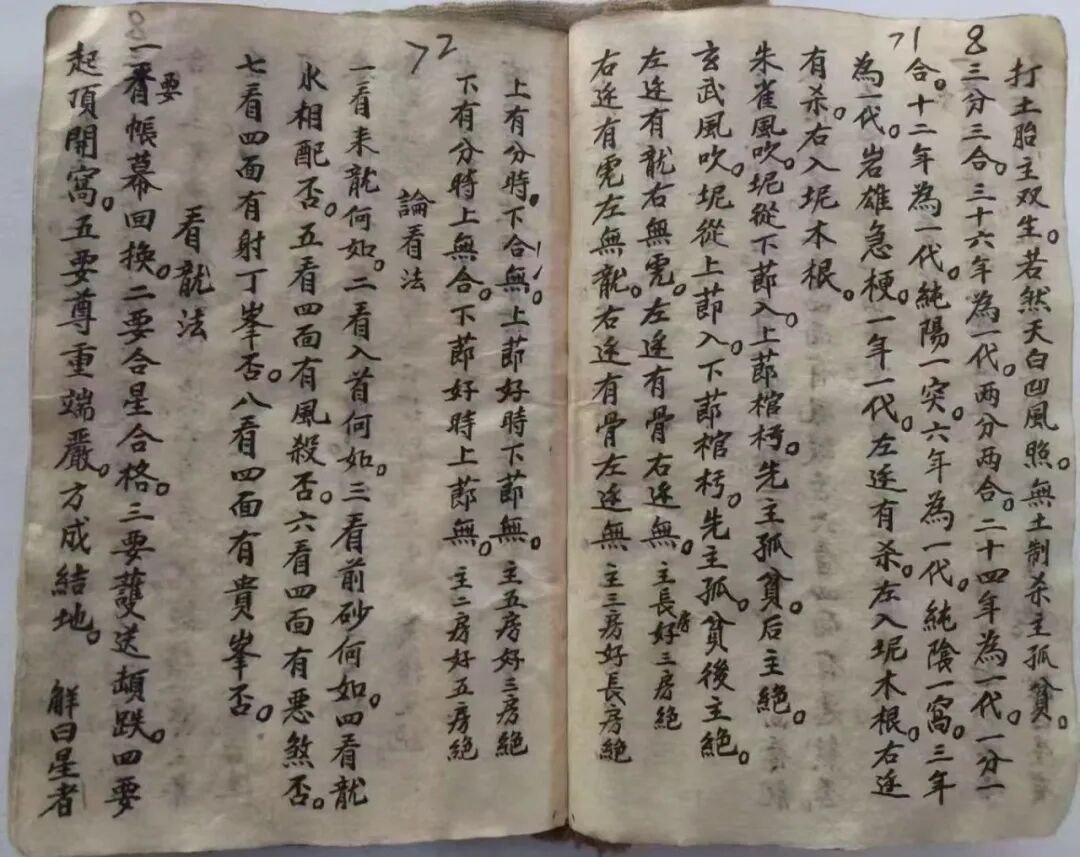 71
8
打土胎主双生。若然天白凹風照。無土制杀主孤貧。
三分三合。三十六年為一代。两分两合。二十四年為一代。一分一
合。十二年為一代。純陽一突。六年為一代。純陰一窩。三年
為一代。岩雄急梗。一年一代。左边有杀。左入坭木根。右边
有杀。右入坭木根。
朱雀風吹。坭從下莭入。上莭棺枵。先主孤貧。后主絶。
玄武風吹。坭從上莭入。下莭棺枵。先主孤。貧後主絶。
左边有龍右無虎。左边有骨右边無。主長房好三房絶
右边有虎左無龍。右边有骨左边無 主三房好長房絶
72
上有分時。下合無。上莭好時下莭無。主五房好三房絶
下有分時上無合。下莭好時上莭無。主二房好五房絶
論看法
一看来龍何如。二看入首何如。三看前砂何如。四看龍
水相配否。五看四面有風殺否。六看四面有惡煞否。
七看四面有射丁峯否。八看四面有貴峯否。
看龍法
一要看帳幕回換。二要合星合格。三要護送頓跌。四要
起頂開窩。五要尊重端嚴。方成結地。 解曰星者
8